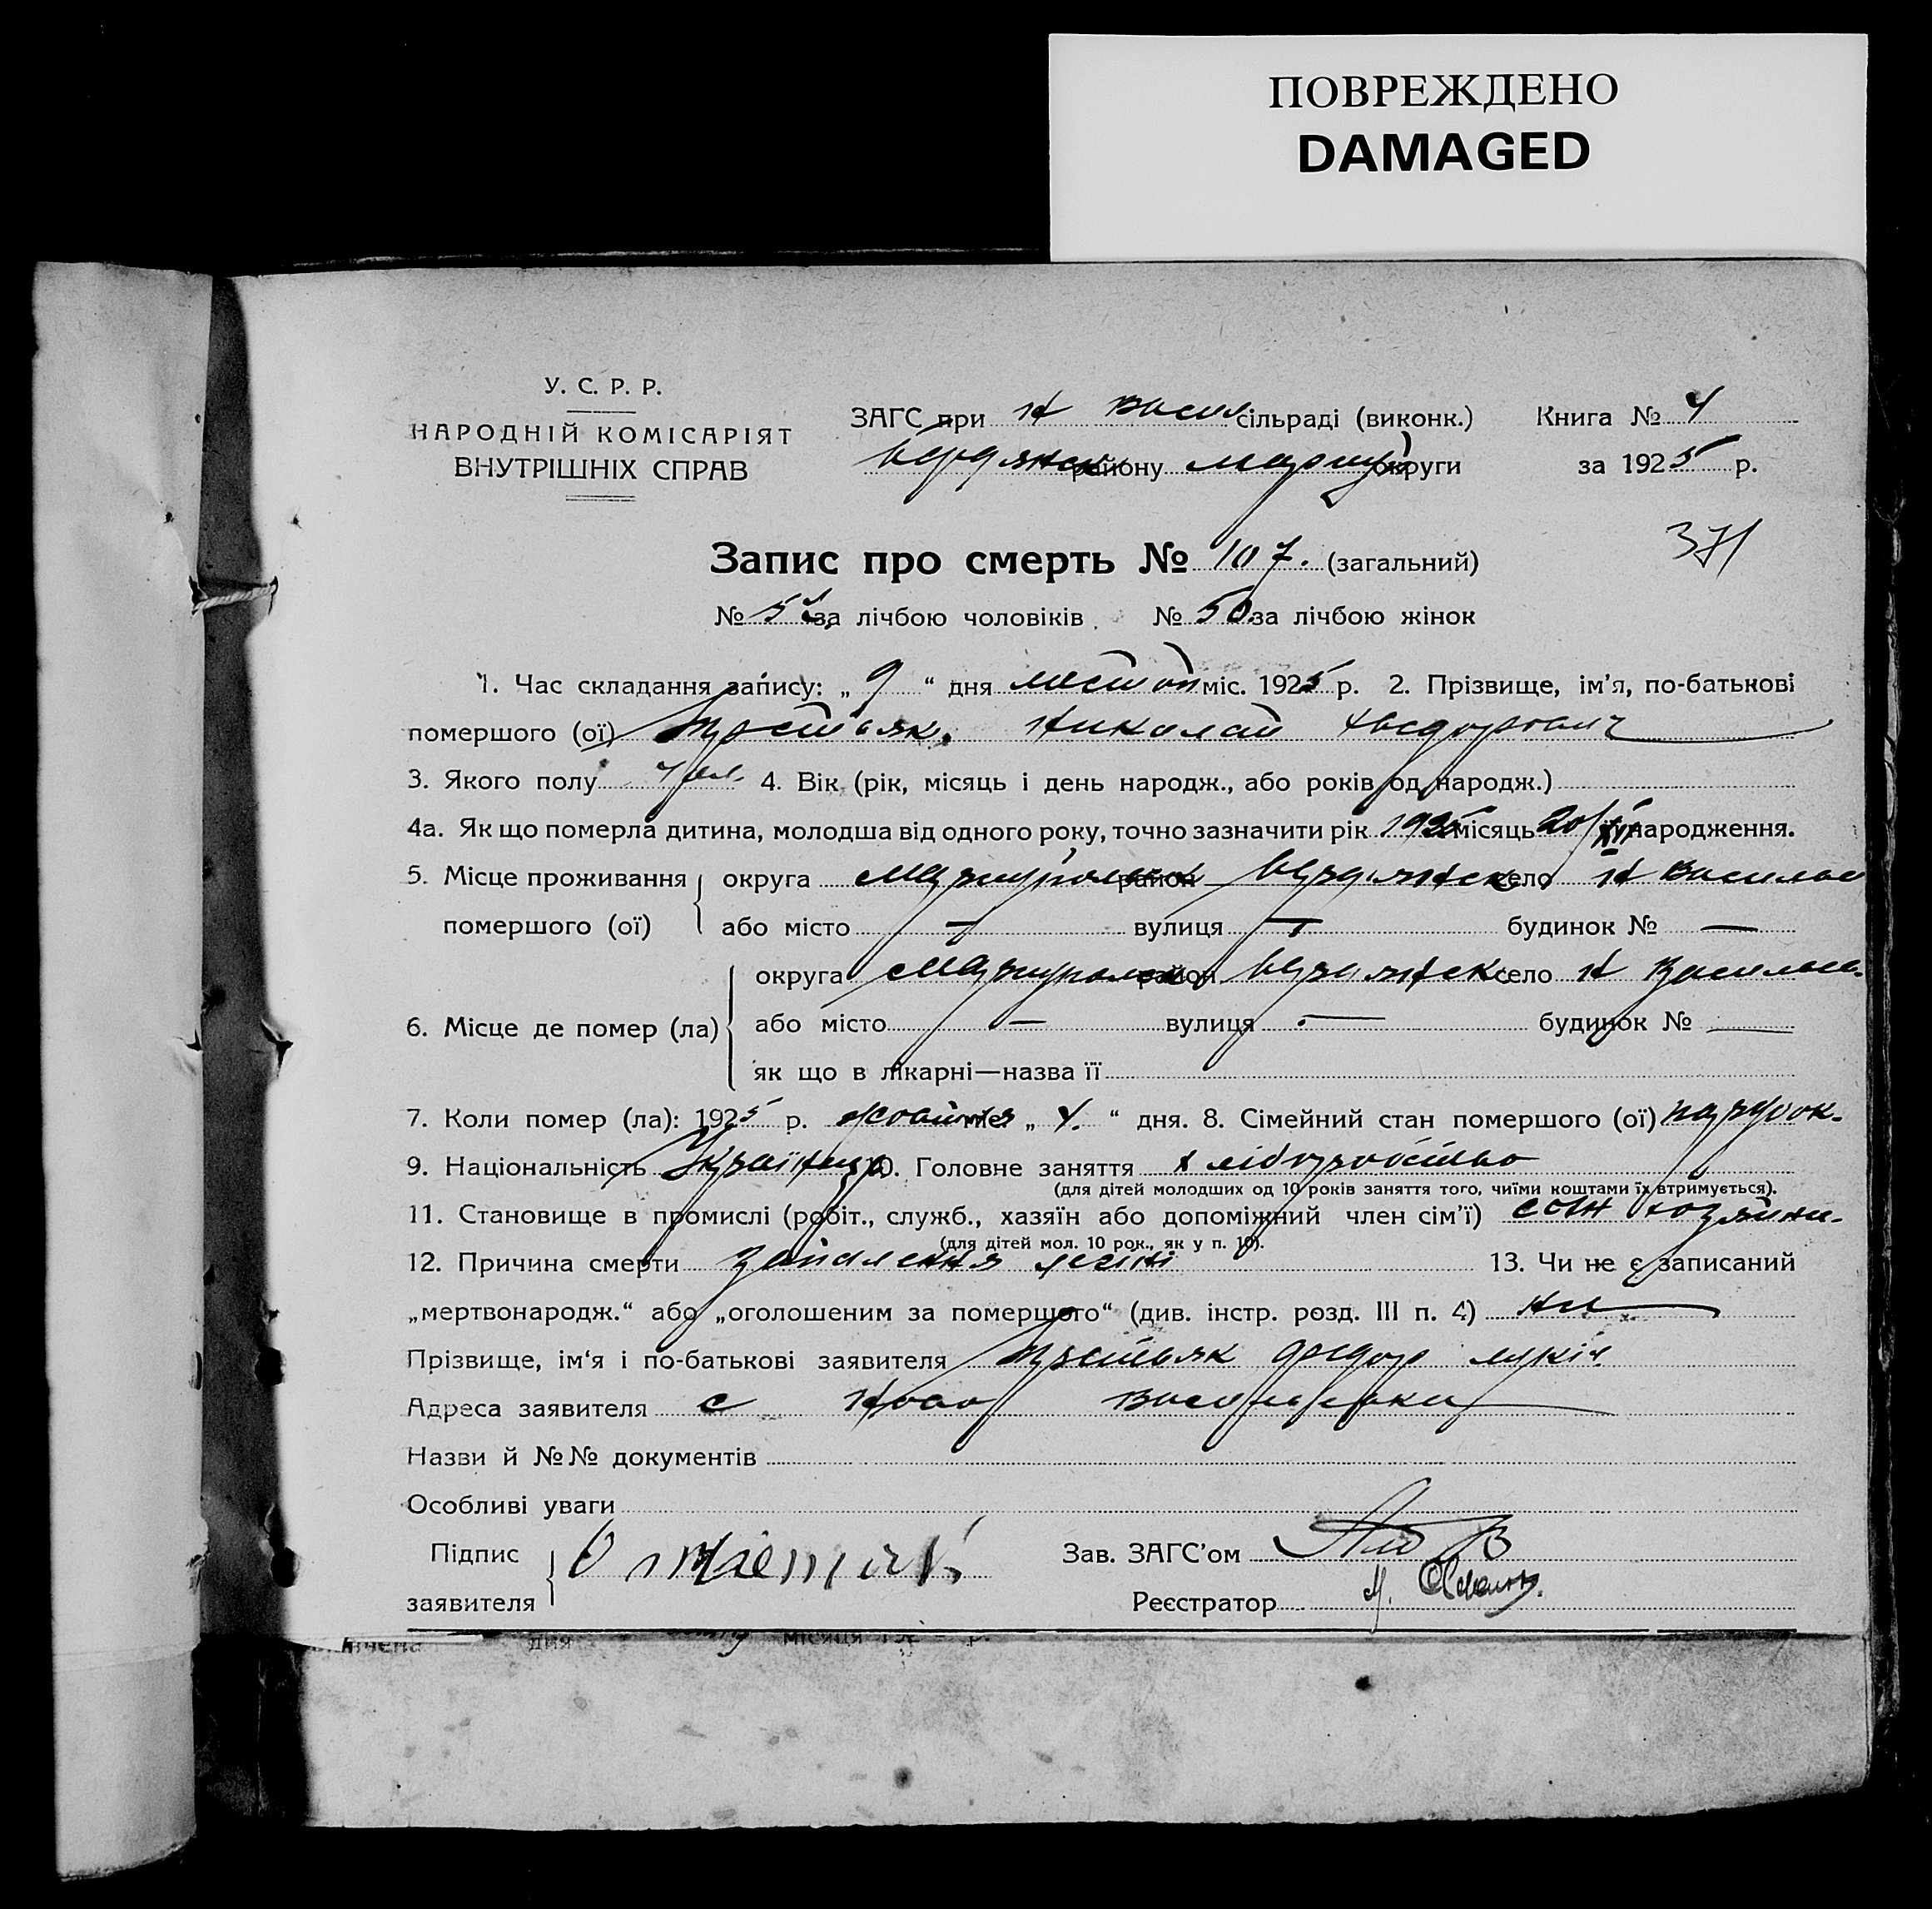 ПОВРЕЖДЕНО
DAMAGED
У. С. Р. Р.
НАРОДНІЙ КОМІСАРІЯТ
ВНУТРІШНІХ СПРАВ
ЗАГС при Н Васил сільраді (виконк.)
Бердянськ району Маріуп округи
Книга № 4
за 1925 р.
371
Запис про смерть № 107. (загальний)
№ 57 за лічбою чоловіків № 50 за лічбою жінок
1. Час складання запису: „ 9 “ дня листоп міс. 1925 р. 2. Прізвище, ім’я, по-батькові
помершого (ої) Николай Федорович
3. Якого полу чол. 4. Вік (рік, місяць і день народж., або років од народж.)
4а. Як що померла дитина, молодша від одного року, точно зазначити рік 1925 місяць 20/ народження.
5. Місце проживання округа Маріупольськ район Бердянськ село Н Васильев
помершого (ої) або місто — вулиця — будинок № —
округа Маріупольськ район Бердянськ село Н Васильев.
6. Місце де помер (ла) або місто — вулиця — будинок № —
як що в лікарні—назва її
7. Коли помер (ла): 1925 р. жовтня „ 4. “ дня. 8. Сімейний стан помершого (ої) парубок.
9. Національність Українець 10. Головне заняття хліборобство
(для дітей молодших од 10 років заняття того, чиїми коштами їх втримується).
11. Становище в промислі (робіт., служб., хазяїн або допоміжний член сім’ї) син хозяина.
(для дітей мол. 10 рок., як у п. 10).
12. Причина смерти запалення легіні 13. Чи не є записаний
„мертвонародж.“ або „оголошеним за помершого“ (див. інстр. розд. III п. 4) ни
Прізвище, ім‘я і по-батькові заявителя Федор Лукіч
Адреса заявителя с Ново Васильевки
Назви й №№ документів
Особливі уваги
Підпис
заявителя
Зав. ЗАГС’ом
Реєстратор
дня місяця р.